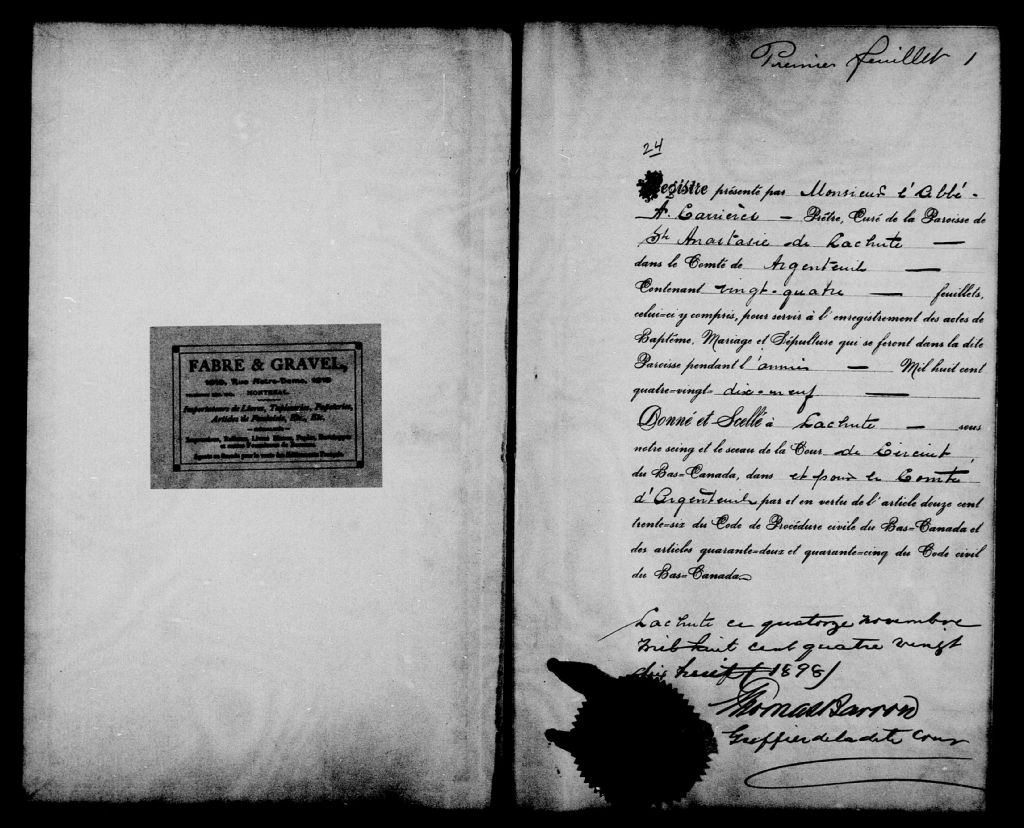 FABRE & GRAVEL,
Rue Notre-Dame,
MONTREAL
Importateurs de Livres, Tapisseries, Papeteries,
Articles de Fantaisie, Etc., Etc.
Premier feuillet 1
24
Registre présenté par Monsieur l'Abbé
A. Carrières — Prêtre, Curé de la Paroisse de
Ste Anastasie de Lachute —
dans le Comté de Argenteuil —
Contenant vingt-quatre — feuillets,
celui=ci y compris, pour servir à l'enregistrement des actes de
Baptême, Mariage et Sépulture qui se feront dans la dite
Paroisse pendant l'année — Mil huit cent
quatre=vingt= dix-neuf —
Donné et Scellé à Lachute — sous
notre seing et le sceau de la Cour de Circuit
du Bas=Canada, dans et pour le Comté
d'Argenteuil par et en vertu de l'article douze cent
trente=six du Code de Procédure civile du Bas=Canada et
des articles quarante=deux et quarante=cinq du Code civil
du Bas=Canada.
Lachute ce quatorze novembre
mil huit cent quatre vingt
dix huit (1898)
Thomas Barron
Greffier de la dite Cour